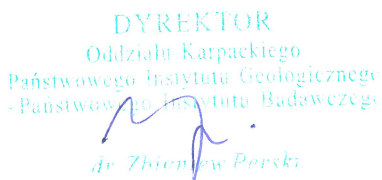 DYREKTOR
Oddziału Karpackiego
Państwowego Instytutu Geologicznego
- Państwowego Instytutu Badawczego
dr Zbigniew Perski